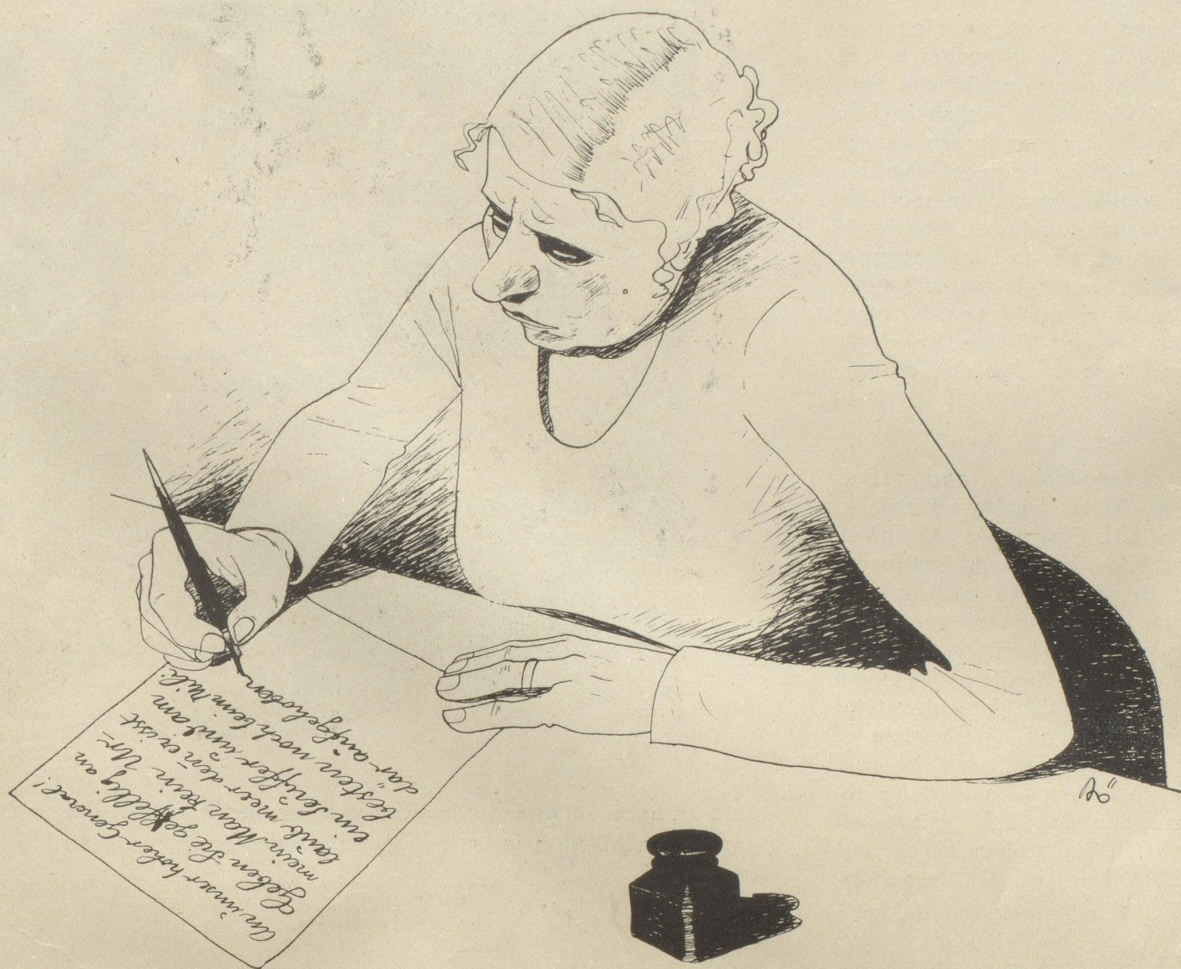 An unser hoher General!
Geben Sie geffellig an
mein Man kein Ur=
laub meer den̄ er isst
ein Seüffer und am
besten noch beim Mili
där aufgehoben
Bö